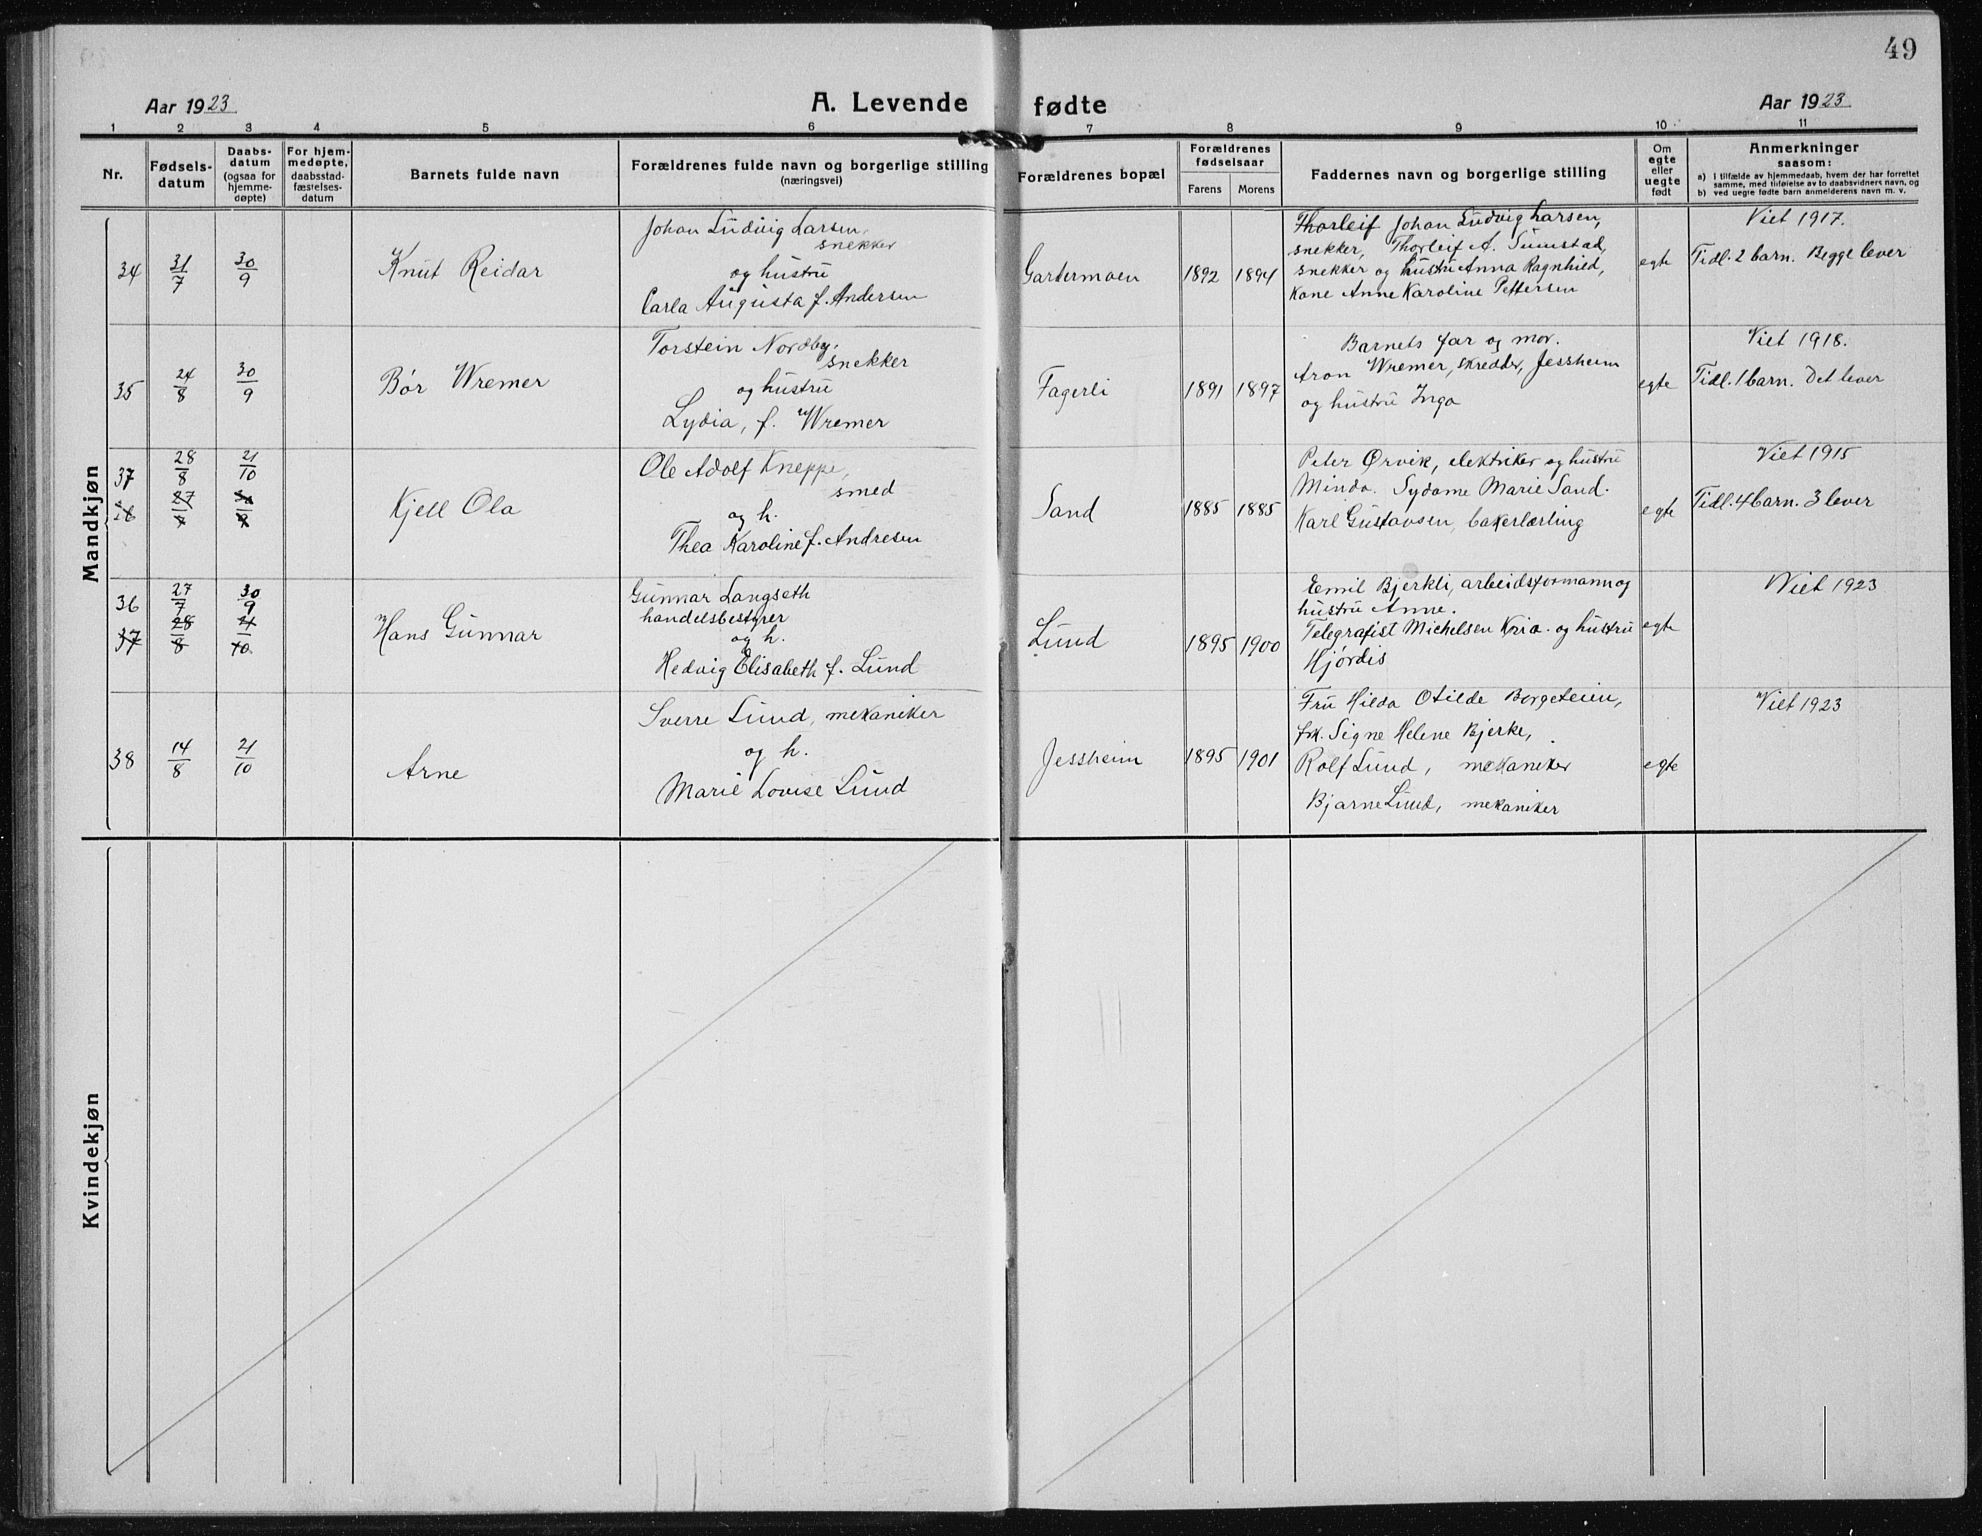 49
Aar 1923
A. Levende fødte
Aar 1923
1 2 3 4 5 6 7 8 9 10 11
Nr.
Fødsels-
datum
Daabs-
datum
(ogsaa for
hjemme-
døpte)
For hjem-
medøpte,
daabsstad-
fæstelses-
datum
Barnets fulde navn
Forældrenes fulde navn og borgerlige stilling
(næringsvei)
Forældrenes bopæl
Forældrenes
fødselsaar
Farens Morens
Faddernes navn og borgerlige stilling
Om
egte
eller
uegte
født
Anmerkninger
saasom:
a) I tilfælde av hjemmedaab, hvem der har forrettet
samme, med tilføielse av to daabsvidners navn, og
b) ved uegte fødte barn anmelderens navn m. v.
Mandkjøn
34
31/7
30/9
Knut Reidar
Johan Ludvig Larsen,
snekker
og hustru
Carla Augusta f. Andersen
Gardermoen
1892 1894
Thorleif Johan Ludvig Larsen,
snekker, Thorleif A. Sumstad,
snekker og hustru Anna Ragnhild,
Kone Anne Karoline Pettersen
egte
Viet 1917.
Tidl. 2 barn. Begge lever
35
24/8
30/9
Bór Wremer
Torstein Nordby,
snekker
og hustru
Lydia, f. Wremer
Fagerli
1891 1897
Barnets far og mor.
Aron Wremer, skredder, Jessheim
og hustru Inga
egte
Viet 1918.
Tidl. 1 barn. Det lever
37
28/8
21/10
27/7
30/9
Kjell Ola
Ole Adolf Kneppe,
smed
og h.
Thea Karoline f. Andresen
Sand
1885 1885
Peter Ørvik, elektriker og hustru
Minda. Sydame Marie Sand.
Karl Gustavsen, bakerlærling
egte
Viet 1915
Tidl. 4 barn. 3 lever
36
27/7
30/9
37
28/8
21/10
Hans Gunnar
Gunnar Langseth
handelsbestyrer
og h.
Hedvig Elisabeth f. Lund
Lund
1895 1900
Emil Bjerkli, arbeidsformann og
hustru Anne.
Telegrafist Michelsen Kria. og hustru
Hjørdis
egte
Viet 1923
38
14/8
21/10
Arne
Sverre Lund, mekaniker
og h.
Marie Lovise Lund
Jessheim
1895 1901
Fru Hilda Otilde Borgeteien,
frk. Signe Helene Bjerke,
Rolf Lund, mekaniker
Bjarne Lund, mekaniker
egte
Viet 1923
Kvindekjøn